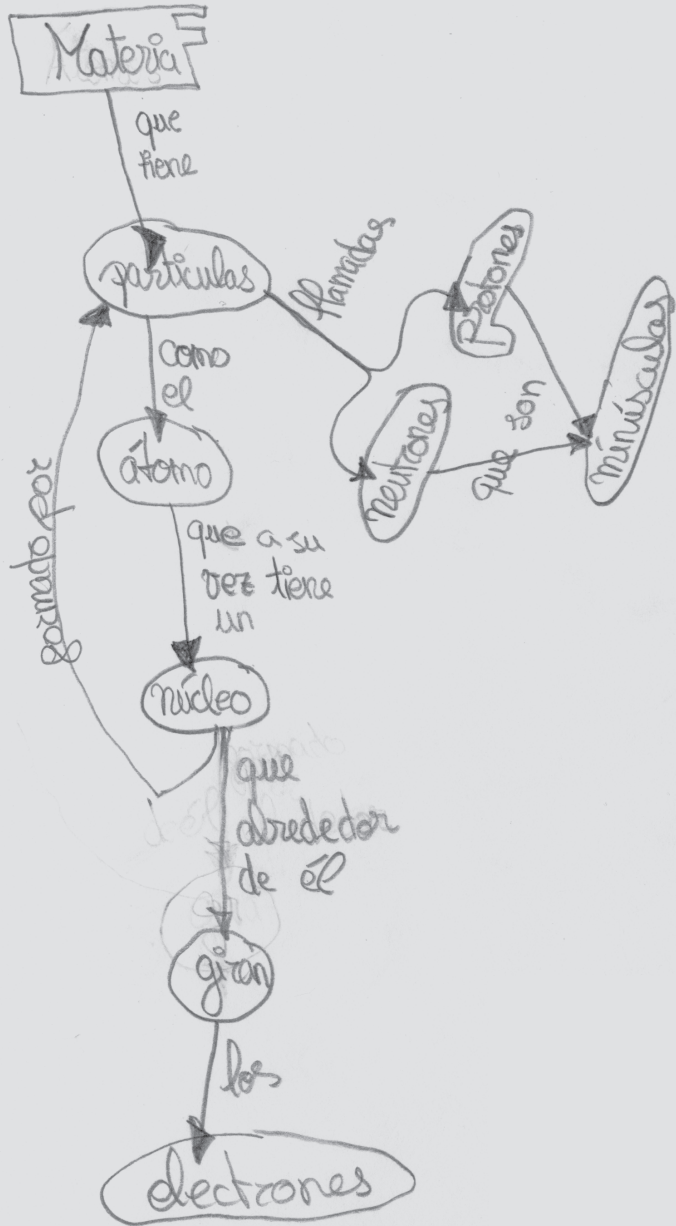 Materia
que
tiene
partículas
llamadas
protones
neutrones
que son
minúsculas
como
el
átomo
que a su
vez tiene
un
núcleo
formado por
que
alrededor
de él
giran
los
electrones